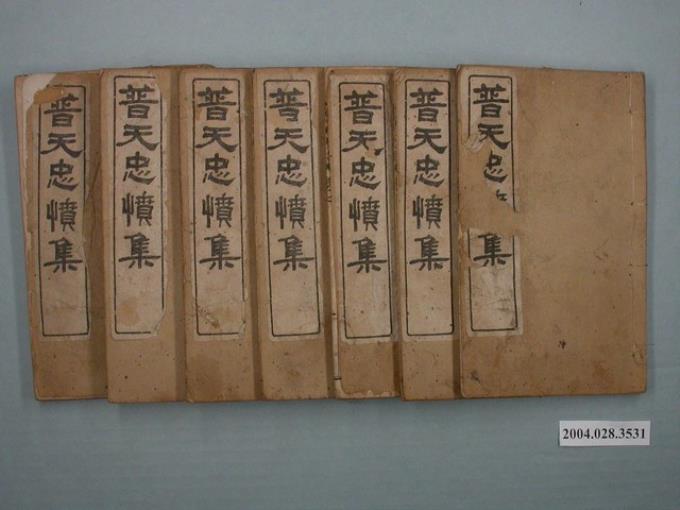 普天忠憤集
普天忠憤集
普天忠憤集
普天忠憤集
普天忠憤集
普天忠憤集
普天忠 集
2004.028.3531